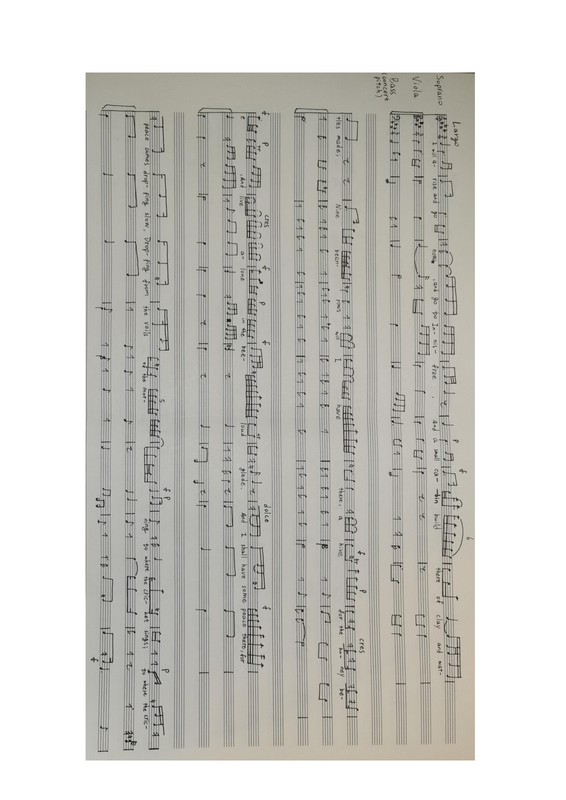 Largo
Soprano
I will a- rise and go now, and go to In-nis-free, And a small ca-bin build there of clay and wat-
Viola
Bass
(concert pitch)
tles made; Nine bean rows will I have there, a hive for the ho-ney be-
f p cres f p f dolce f
e And live a-lone in the bee- loud glade. And I shall have some peace there, for
peace comes drop-ping slow, Drop-ping from the veils
of the mor- ning to where the cric-ket sings; to where the cric-